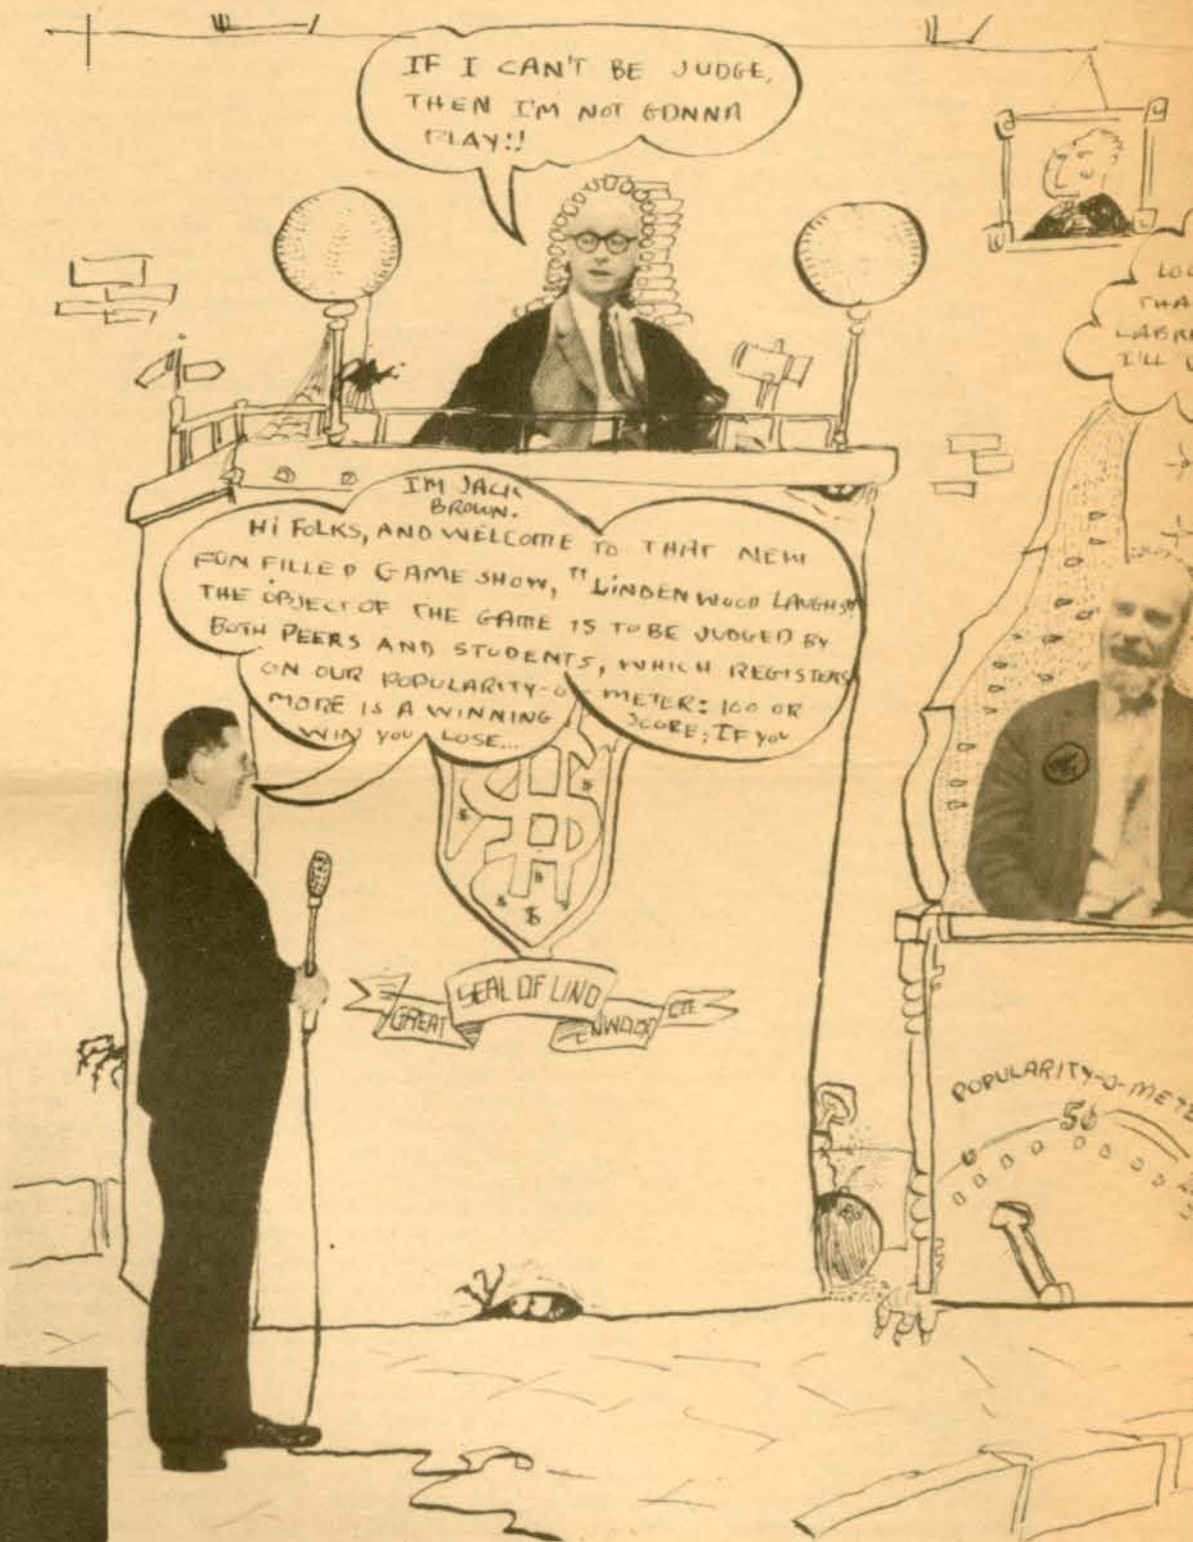 IF I CAN'T BE JUDGE,
THEN I'M NOT GONNA
PLAY!!
I'M JACK
BROWN.
HI FOLKS, AND WELCOME TO THAT NEW
FUN FILLED GAME SHOW, "LINDENWOOD LAUGHS"
THE OBJECT OF THE GAME IS TO BE JUDGED BY
BOTH PEERS AND STUDENTS, WHICH REGISTERS
ON OUR POPULARITY-O-METER: 100 OR
MORE IS A WINNING SCORE; IF YOU
WIN YOU LOSE...
THA
LABR
I'LL
$
$
$
$
$
GREAT SEAL OF LIND ENWOOD
POPULARITY-O-METE
0 50